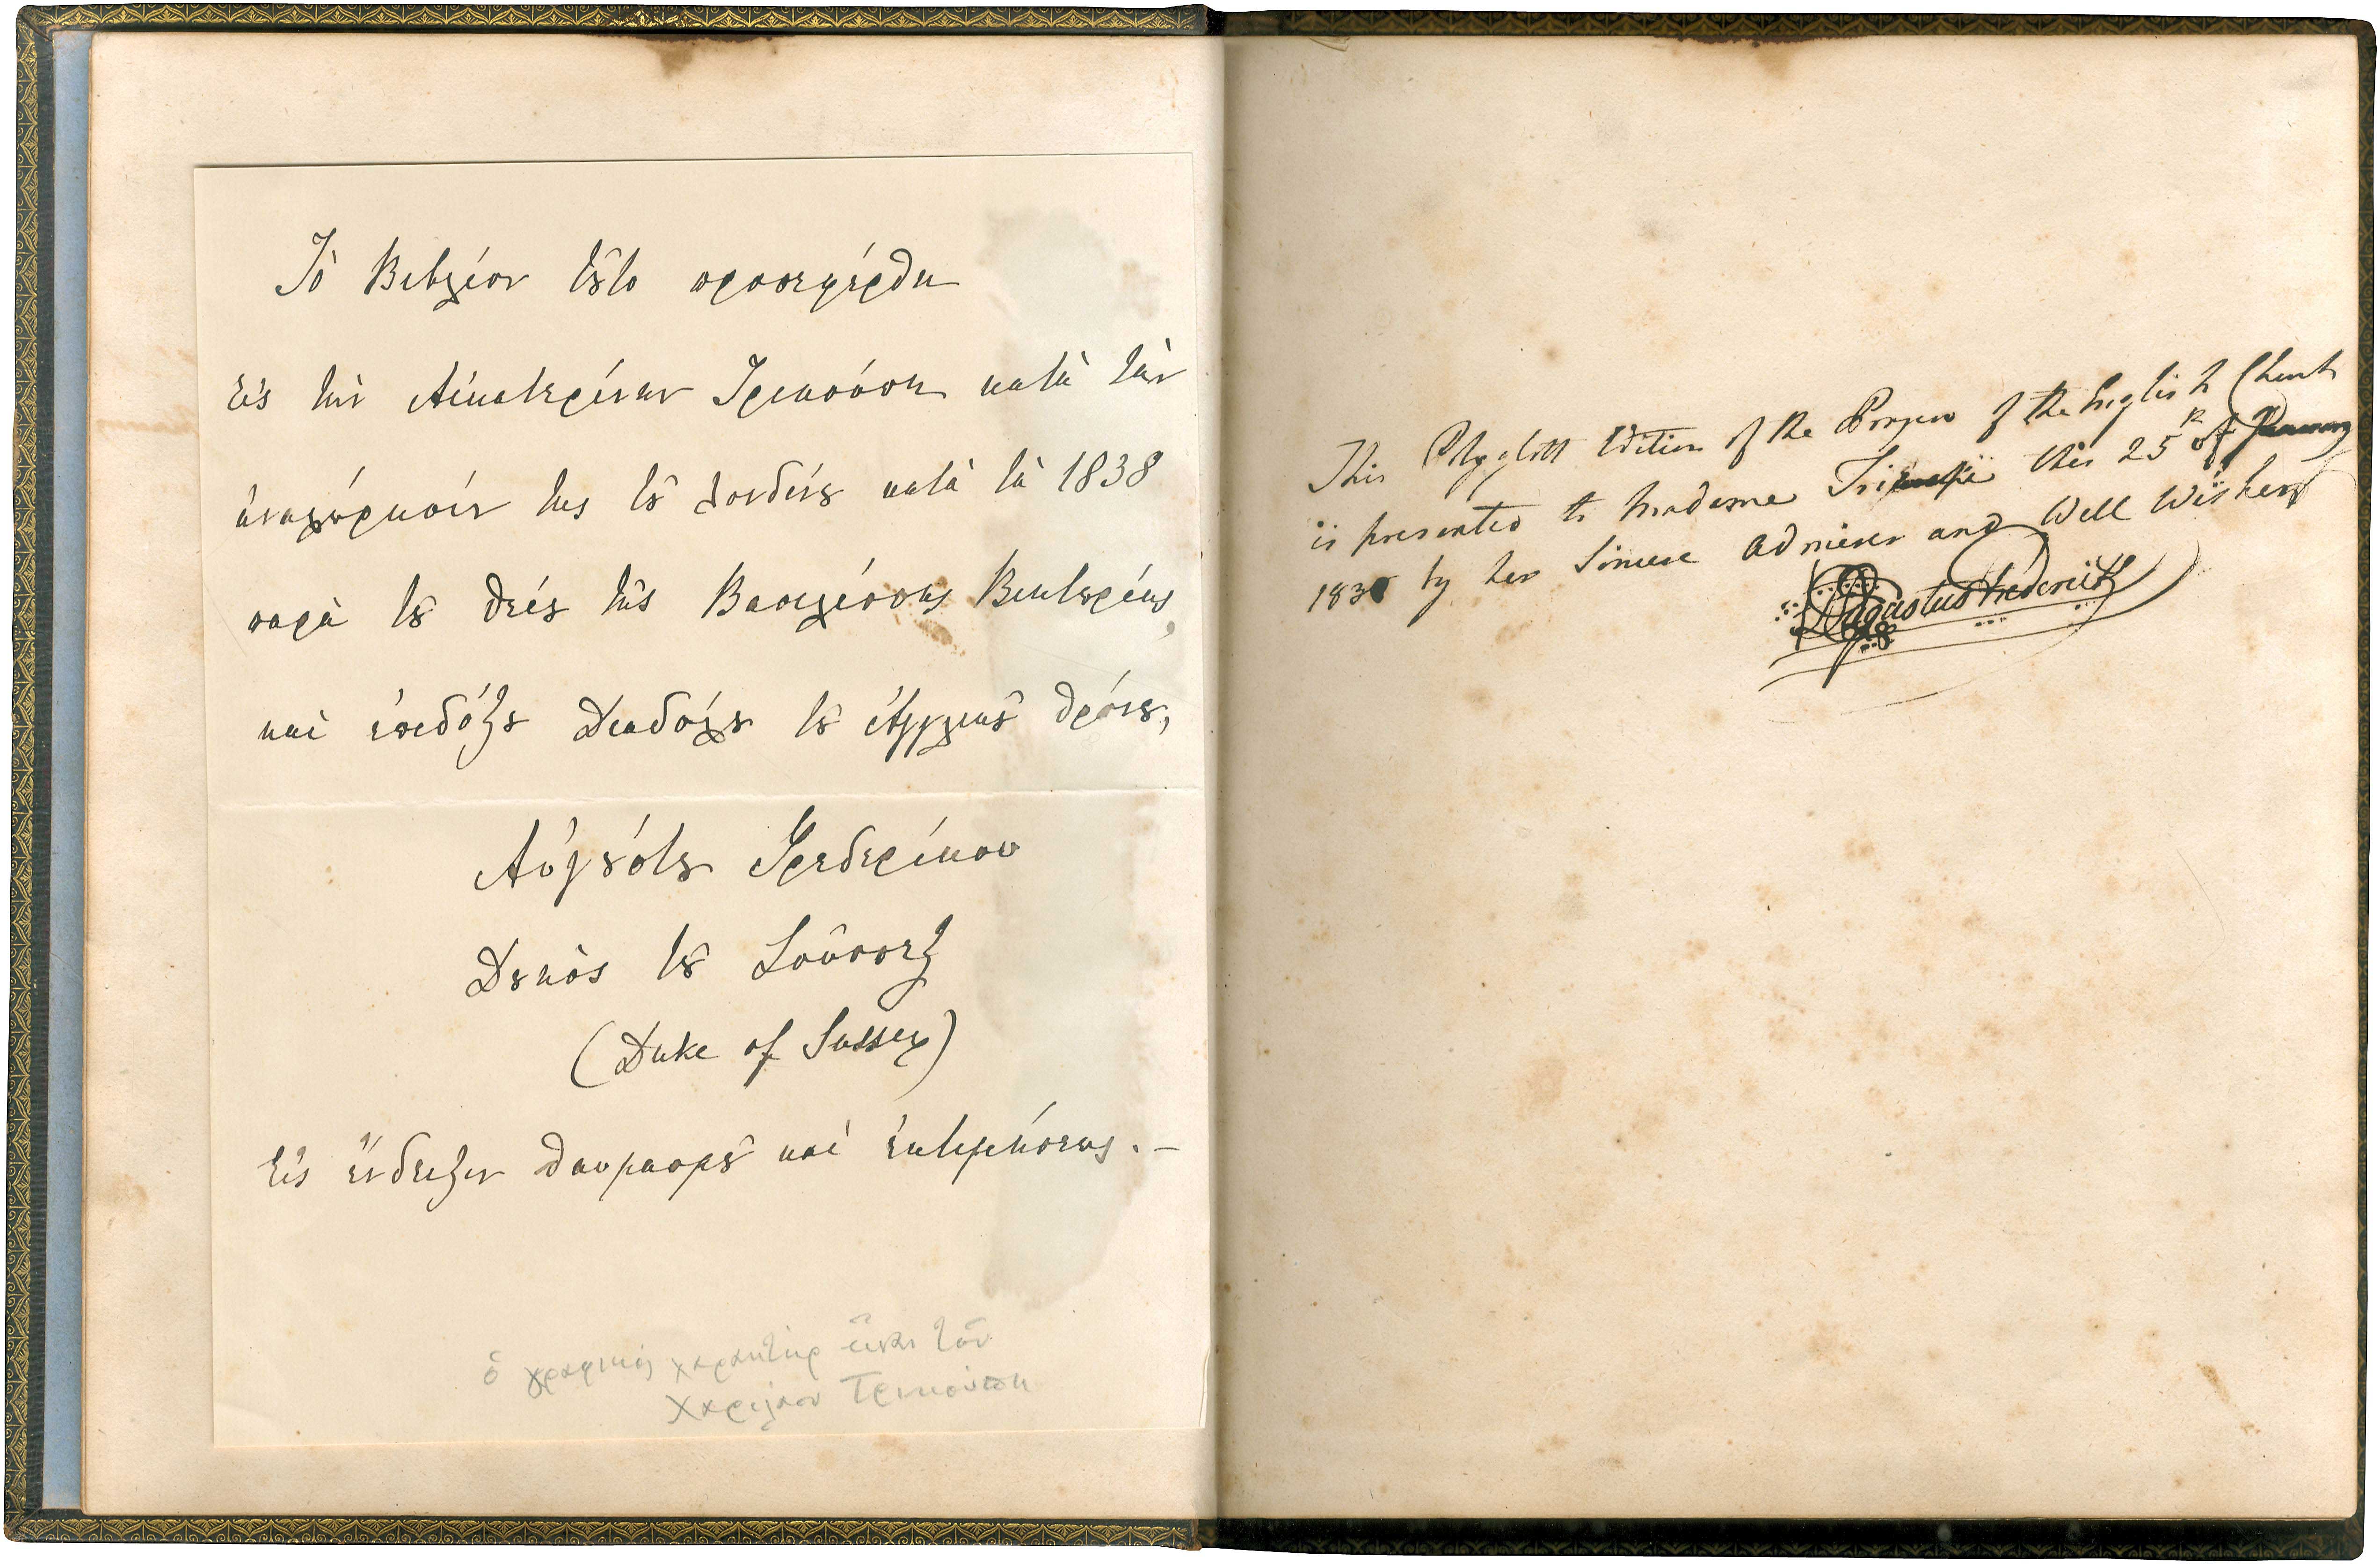 Τὸ Βιβλίον τȣ̃το προσεφέρθη
εἰς τὴν Αἰκατερίνην Τρικούπη κατὰ τὴν
ἀναχώρησίν της ἐκ Λονδίνȣ κατὰ τὰ 1838
παρὰ τȣ̃ θείȣ τῆς Βασιλίσσης Βικτωρίας,
καὶ ἐπιδόξȣ Διαδόχȣ τȣ̃ Ἀγγλικȣ̃ θρόνȣ,
Αὐγȣ́στȣ Φρεδερίκου
Δȣκὸς τȣ̃ Σούσσεξ
(Duke of Sussex)
εἰς ἔνδειξιν θαυμασμȣ̃ καὶ ἐκτιμήσεως. –
ὁ γραφικός χαρακτήρ εἶναι τοῦ
Χαριλάου Τρικούπη
This Polyglott Edition of the Prayers of the English Church
is presented to Madame Tricoupi this 25th of January
1838 by her Sincere Admirer and Well Wisher
Augustus Frederick